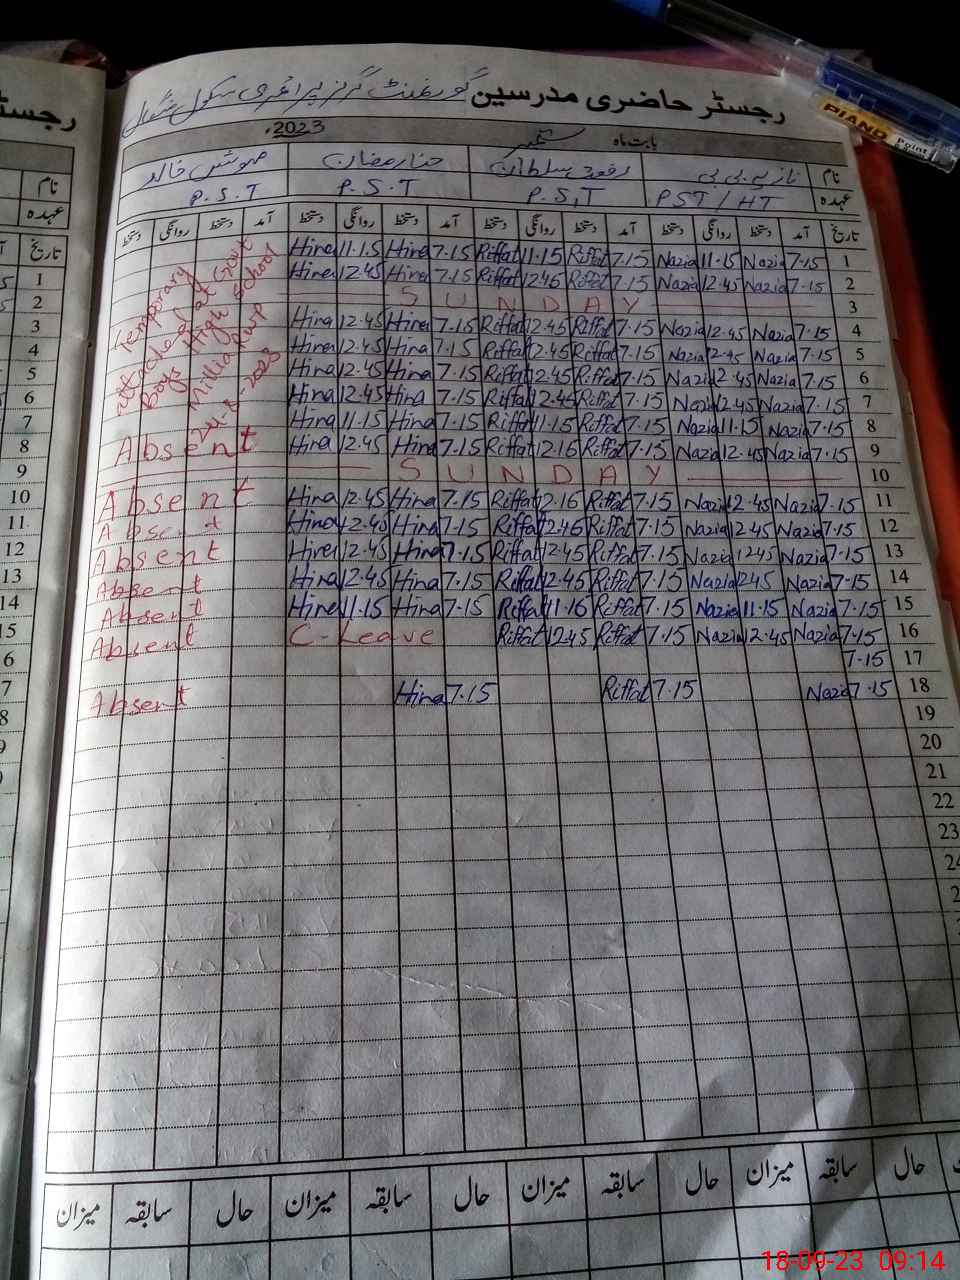 رجسٹر حاضری مدرسین گورنمنٹ گرلز پرائمری سکول
بابت ماہ ستمبر 2023ء
نام نازیہ بی بی رفعت سلطان حنا رمضان مہوش خالد
عہدہ PST / HT P.S.T P.S.T P.S.T
تاریخ آمد دستخط روانگی دستخط آمد دستخط روانگی دستخط آمد دستخط روانگی دستخط آمد دستخط روانگی دستخط
Temporary
attached at Govt
Boys High School
Millia Rwp
24-8-2023
Hina 11.15 Hina 7.15 Riffat 11.15 Riffat 7.15 Nazia 11.15 Nazia 7.15 1
Hina 12.45 Hina 7.15 Riffat 12.45 Riffat 7.15 Nazia 12.45 Nazia 7.15 2
SUNDAY 3
Hina 12.45 Hina 7.15 Riffat 12.45 Riffat 7.15 Nazia 12.45 Nazia 7.15 4
Hina 12.45 Hina 7.15 Riffat 12.45 Riffat 7.15 Nazia 12.45 Nazia 7.15 5
Hina 12.45 Hina 7.15 Riffat 12.45 Riffat 7.15 Nazia 12.45 Nazia 7.15 6
Hina 12.45 Hina 7.15 Riffat 12.45 Riffat 7.15 Nazia 12.45 Nazia 7.15 7
Hina 11.15 Hina 7.15 Riffat 11.15 Riffat 7.15 Nazia 11.15 Nazia 7.15 8
Absent Hina 12.45 Hina 7.15 Riffat 12.16 Riffat 7.15 Nazia 12.45 Nazia 7.15 9
SUNDAY 10
Absent Hina 12.45 Hina 7.15 Riffat 12.16 Riffat 7.15 Nazia 12.45 Nazia 7.15 11
Absent Hina 12.45 Hina 7.15 Riffat 12.46 Riffat 7.15 Nazia 12.45 Nazia 7.15 12
Absent Hina 12.45 Hina 7.15 Riffat 12.45 Riffat 7.15 Nazia 1245 Nazia 7.15 13
Absent Hina 12.45 Hina 7.15 Riffat 12.45 Riffat 7.15 Nazia 1245 Nazia 7.15 14
Absent Hina 11.15 Hina 7.15 Riffat 11.16 Riffat 7.15 Nazia 11.15 Nazia 7.15 15
Absent C-Leave Riffat 12.45 Riffat 7.15 Nazia 12.45 Nazia 7.15 16
7.15 17
Absent Hina 7.15 Riffat 7.15 Nazia 7.15 18
19
20
21
22
23
24
حال سابقہ میزان حال سابقہ میزان حال سابقہ میزان حال سابقہ میزان
PIANO
Point
رجسٹر
نام
عہدہ
تاریخ
1
2
3
4
5
6
7
8
9
10
11
12
13
14
15
18-09-23 09:14